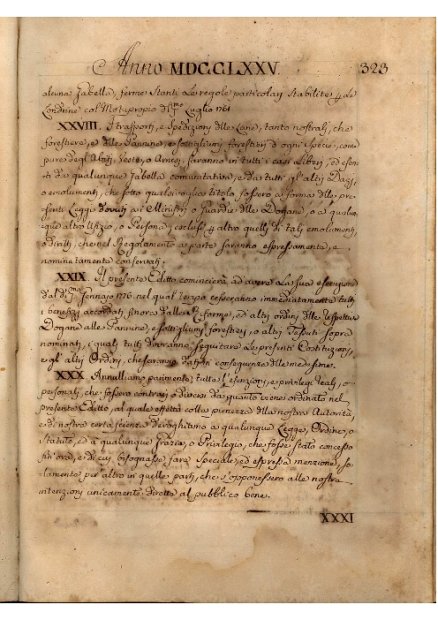 Anno MDCCLXXV. 323
alcuna Gabella, ferme stanti Le regole particolari Stabilite p Le
Londrine col Motuproprio di pmo Luglio 1761
XXVIII. I trasporti, e Spedizioni delle Lane, tanto nostrali, che
forestiere, e delle Pannine, e sottigliumi forestieri d'ogni Specie, com-
pure degl'Utensi, Vesti, o Arnesi, saranno in tutti i casi Liberi, ed esen-
ti da qualunque Gabella comunitativa, e da tutti gl'altri Dazj,
o emolumenti, che sotto qualsivoglia titolo fossero a forma delle pre-
senti Leggi dovuti ai Ministri, o Guardie delle Dogane, o a qualun-
que altro Ufizio, o Persona, esclusi p altro quelli di tali emolumenti,
o diritti, che nel Regolamento a parte saranno espressamente, e
nominatamente conservati.
XXIX. Il presente Editto comincerà ad avere La sua esecuzione
dal dì pmo Gennajo 1776 nel qual tempo cesseranno immediatamente tutti
i benefizi accordati finora dalle Riforme, ed altri ordini delle respettive
Dogane alle Pannine, e sottigliumi forestieri, o altri Tessuti sopra
nominati, i quali tutti dovranno seguitare Le presenti Costituzioni,
e gl'altri Ordini, che saranno dati in conseguenza delle medesime.
XXX. Annulliamo parimente tutte l'esenzioni, e privilegi reali, o
personali, che fossero contrari, o diversi da quanto viene ordinato nel
presente Editto, al quale effetto colla pienezza della nostra Autorità,
e di nostra certa scienza deroghiamo a qualunque Legge, Ordine, o
Statuto, e a qualunque Grazia, o Privilegio, che fosse stato concesso
fin'ora, e di cui bisognasse fare Speciale, ed espressa menzione, so-
lamente per altro in quelle parti, che s'opponessero alle nostre
intenzioni unicamente dirette al pubblico bene.
XXXI